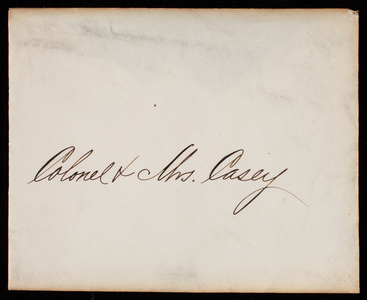 Colonel & Mrs. Casey